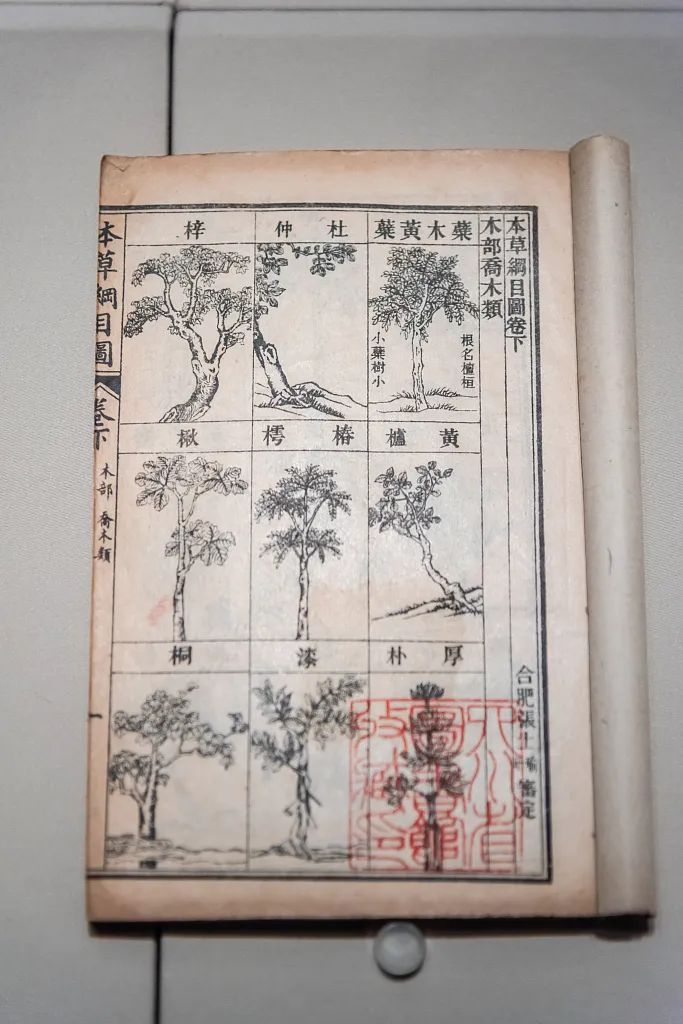 本草綱目圖卷下
合肥張士審定
木部喬木類
蘗木黃蘗
根名檀桓
小蘗樹小
杜仲
梓
黃櫨
椿樗
楸
厚朴
漆
桐
本草綱目圖
卷下
木部 喬木類
一